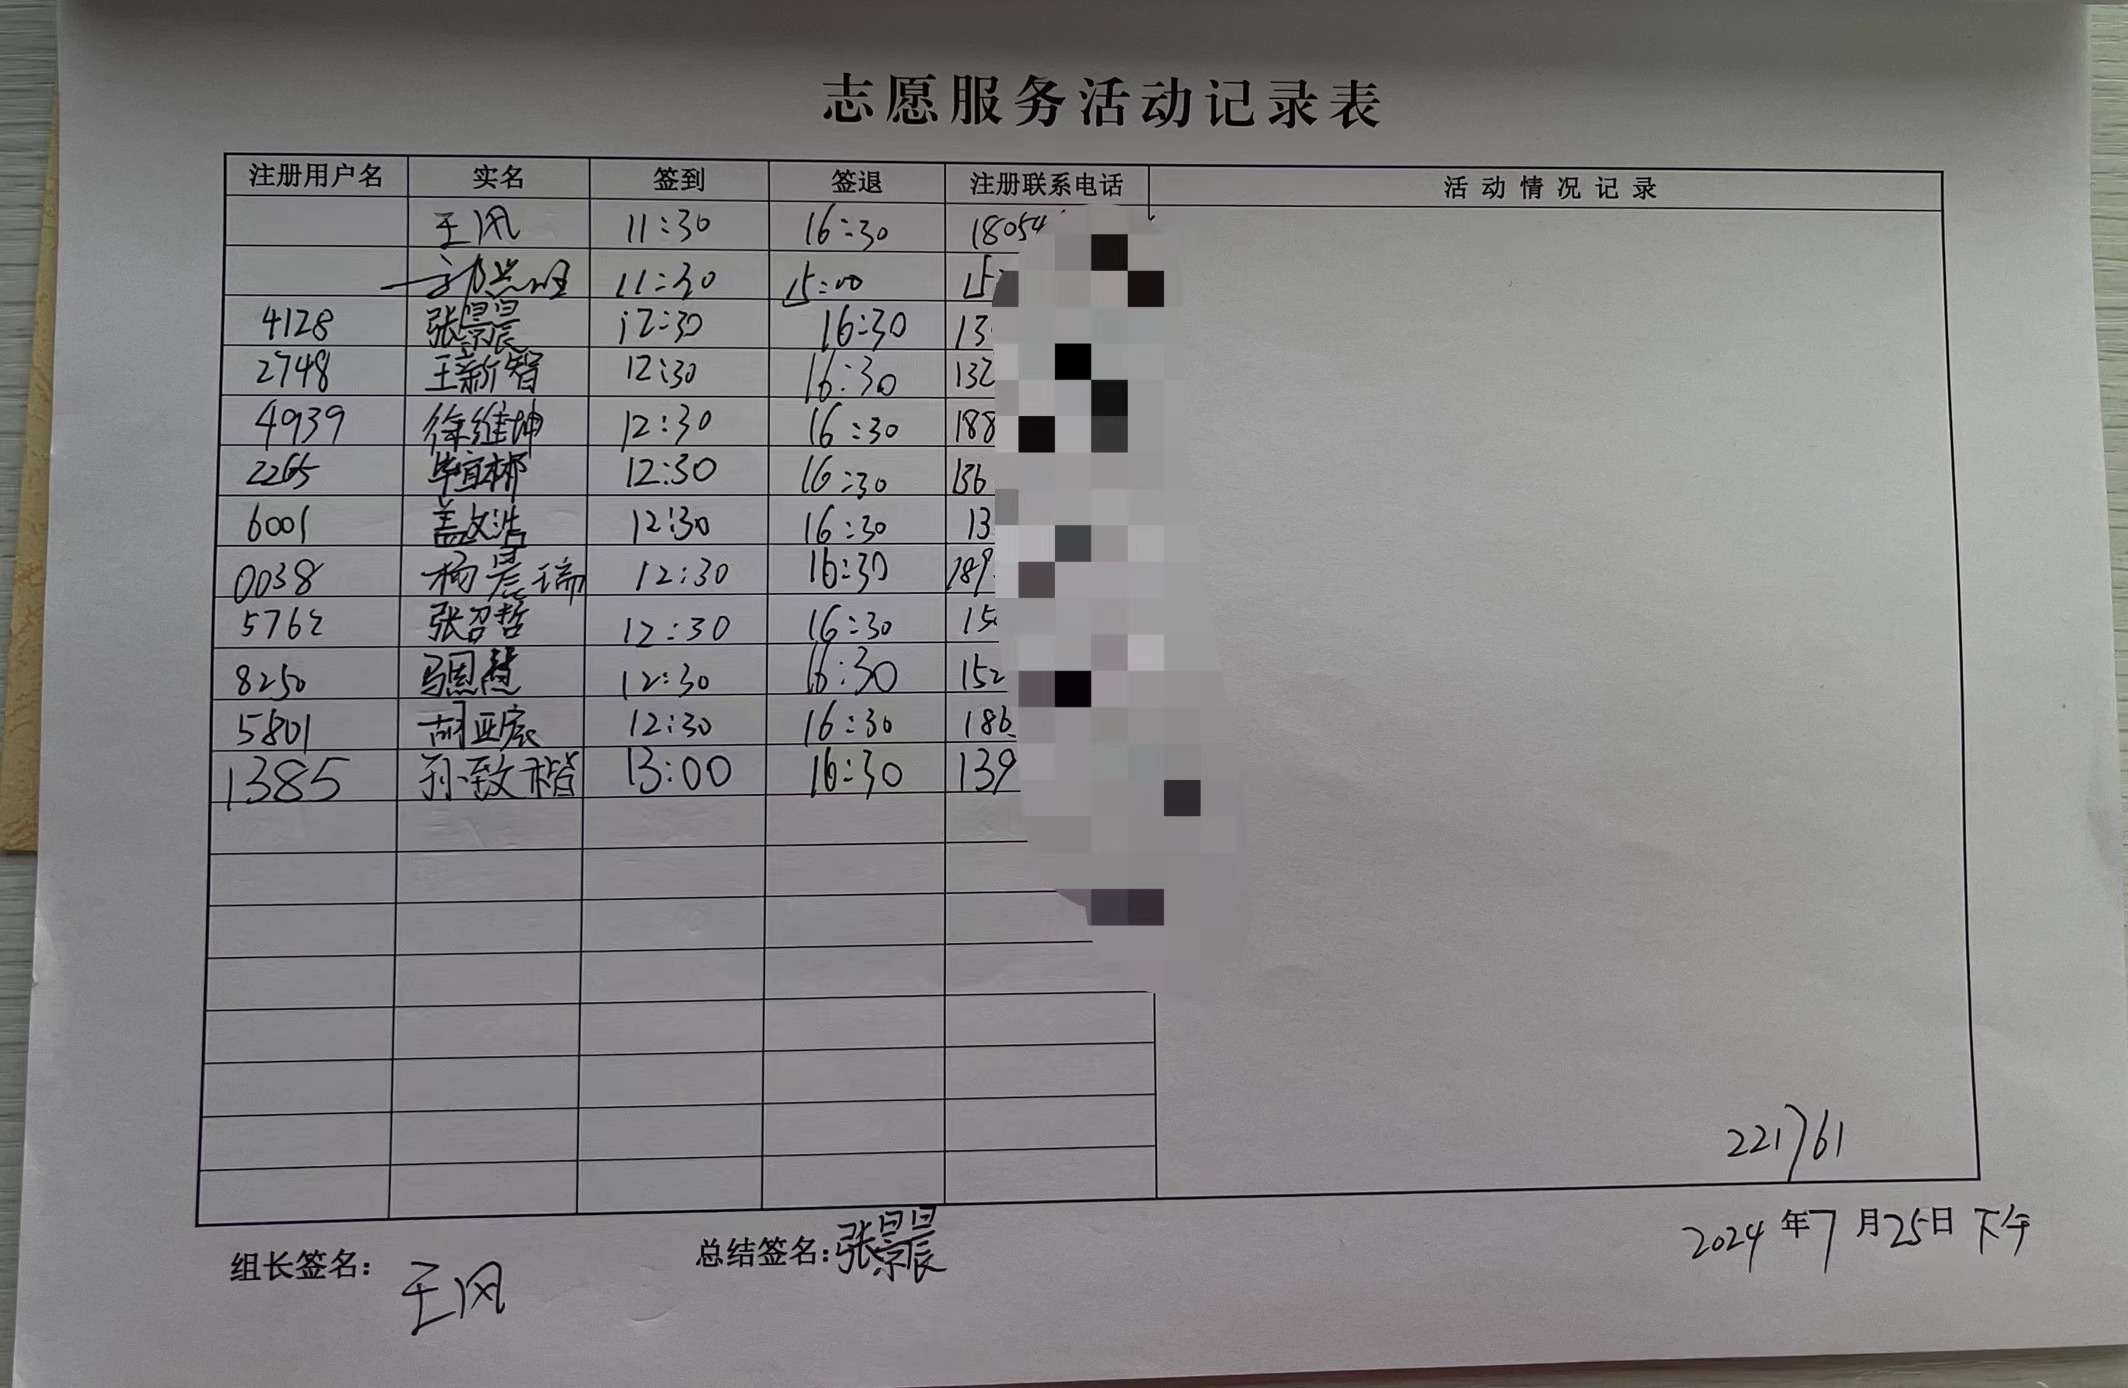 志愿服务活动记录表
注册用户名 实名 签到 签退 注册联系电话 活动情况记录
王风 11:30 16:30 18054
11:30 15:00 15
4128 张景晨 12:30 16:30 13
2748 王新智 12:30 16:30 132
4939 徐维坤 12:30 16:30 188
2265 毕宜彬 12:30 16:30 136
6001 盖文浩 12:30 16:30 13
0038 杨晨瑞 12:30 16:30 189
5762 张召哲 12:30 16:30 15
8250 马恩慧 12:30 16:30 152
5801 胡亚宸 12:30 16:30 186
1385 孙致楷 13:00 16:30 139
221761
2024年7月25日 下午
组长签名: 王风 总结签名: 张景晨